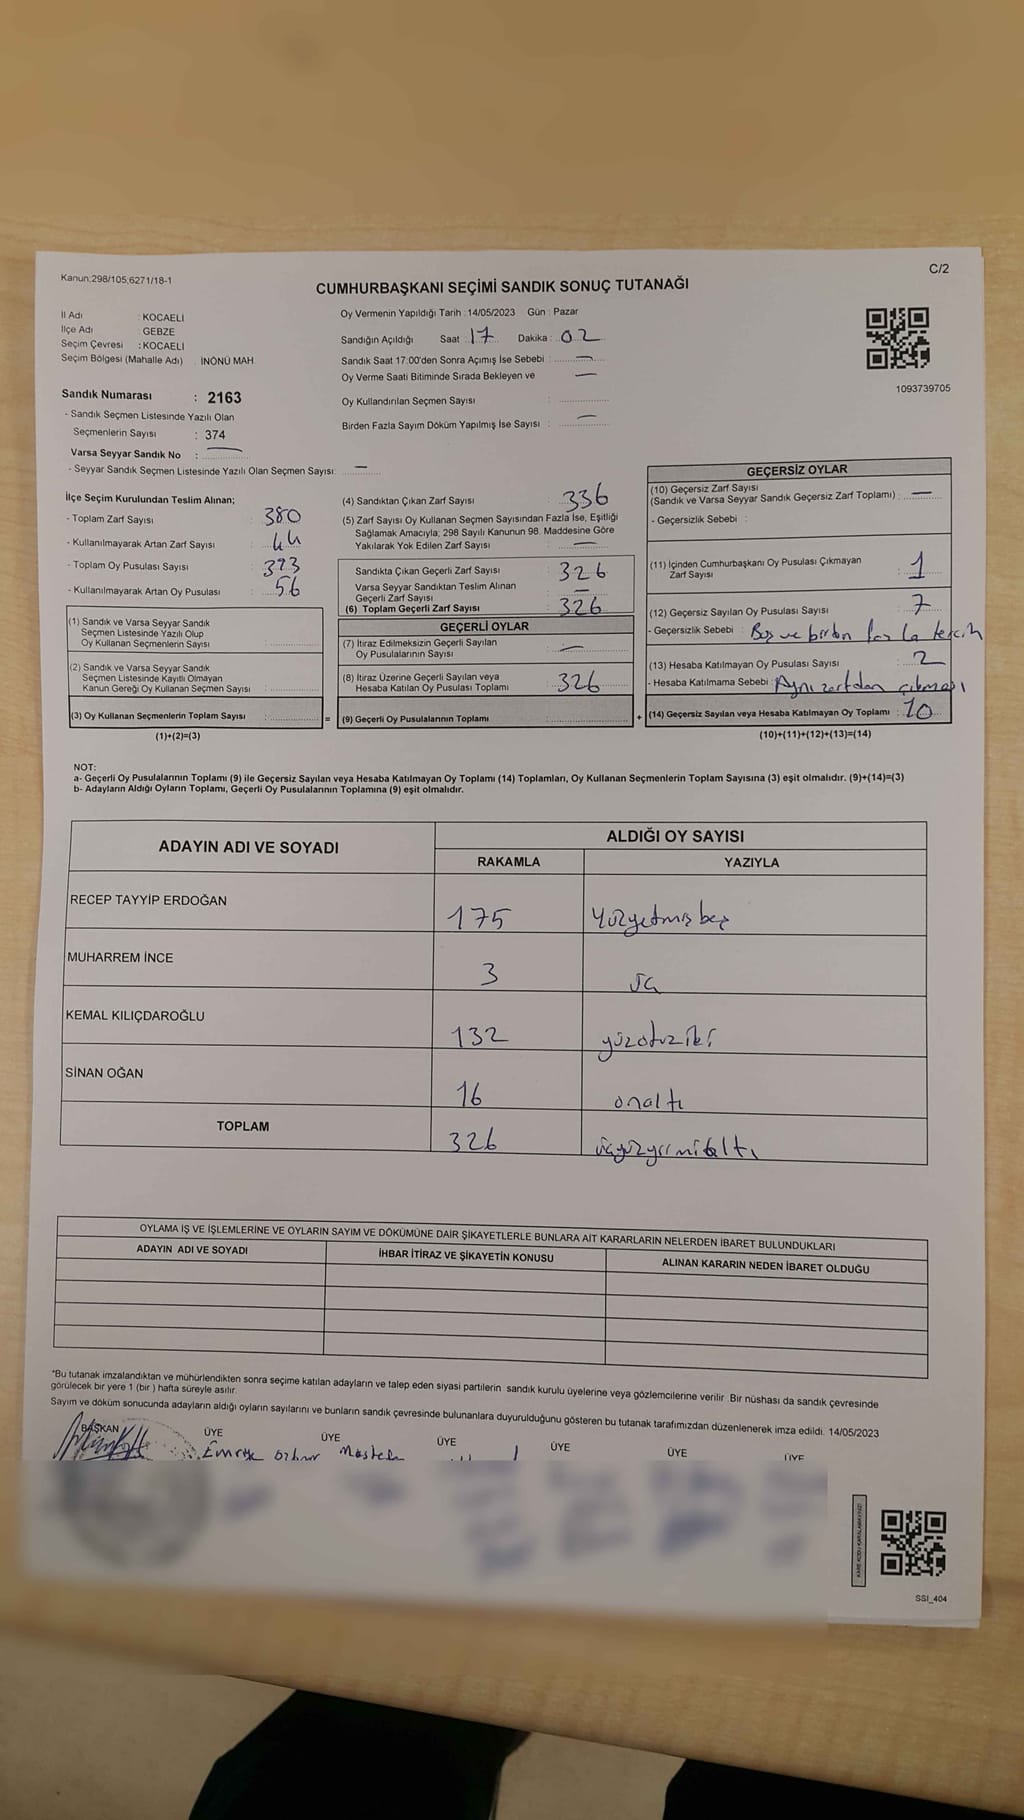 Kanun:298/105,6271/18-1
C/2
CUMHURBAŞKANI SEÇİMİ SANDIK SONUÇ TUTANAĞI
İl Adı : KOCAELİ
İlçe Adı : GEBZE
Seçim Çevresi : KOCAELİ
Seçim Bölgesi (Mahalle Adı) : İNÖNÜ MAH.
Sandık Numarası : 2163
- Sandık Seçmen Listesinde Yazılı Olan
Seçmenlerin Sayısı : 374
Varsa Seyyar Sandık No : —
- Seyyar Sandık Seçmen Listesinde Yazılı Olan Seçmen Sayısı: —
Oy Vermenin Yapıldığı Tarih : 14/05/2023 Gün : Pazar
Sandığın Açıldığı Saat : 17 Dakika : 02
Sandık Saat 17:00'den Sonra Açımış İse Sebebi : —
Oy Verme Saati Bitiminde Sırada Bekleyen ve —
Oy Kullandırılan Seçmen Sayısı :
Birden Fazla Sayım Döküm Yapılmış İse Sayısı : —
1093739705
İlçe Seçim Kurulundan Teslim Alınan;
- Toplam Zarf Sayısı : 380
- Kullanılmayarak Artan Zarf Sayısı : 44
- Toplam Oy Pusulası Sayısı : 393
- Kullanılmayarak Artan Oy Pusulası : 56
(1) Sandık ve Varsa Seyyar Sandık
Seçmen Listesinde Yazılı Olup
Oy Kullanan Seçmenlerin Sayısı :
(2) Sandık ve Varsa Seyyar Sandık
Seçmen Listesinde Kayıtlı Olmayan
Kanun Gereği Oy Kullanan Seçmen Sayısı :
(3) Oy Kullanan Seçmenlerin Toplam Sayısı : =
(1)+(2)=(3)
(4) Sandıktan Çıkan Zarf Sayısı : 336
(5) Zarf Sayısı Oy Kullanan Seçmen Sayısından Fazla İse, Eşitliği
Sağlamak Amacıyla; 298 Sayılı Kanunun 98. Maddesine Göre
Yakılarak Yok Edilen Zarf Sayısı : —
Sandıkta Çıkan Geçerli Zarf Sayısı : 326
Varsa Seyyar Sandıktan Teslim Alınan
Geçerli Zarf Sayısı : —
(6) Toplam Geçerli Zarf Sayısı : 326
GEÇERLİ OYLAR
(7) İtiraz Edilmeksizin Geçerli Sayılan
Oy Pusulalarının Sayısı : —
(8) İtiraz Üzerine Geçerli Sayılan veya
Hesaba Katılan Oy Pusulası Toplamı : 326
(9) Geçerli Oy Pusulalarının Toplamı : +
GEÇERSİZ OYLAR
(10) Geçersiz Zarf Sayısı
(Sandık ve Varsa Seyyar Sandık Geçersiz Zarf Toplamı) : —
- Geçersizlik Sebebi :
(11) İçinden Cumhurbaşkanı Oy Pusulası Çıkmayan
Zarf Sayısı : 1
(12) Geçersiz Sayılan Oy Pusulası Sayısı : 7
- Geçersizlik Sebebi : Boş ve birden fazla tercih
(13) Hesaba Katılmayan Oy Pusulası Sayısı : 2
- Hesaba Katılmama Sebebi : Aynı zarfdan çıkması
(14) Geçersiz Sayılan veya Hesaba Katılmayan Oy Toplamı : 10
(10)+(11)+(12)+(13)=(14)
NOT:
a- Geçerli Oy Pusulalarının Toplamı (9) ile Geçersiz Sayılan veya Hesaba Katılmayan Oy Toplamı (14) Toplamları, Oy Kullanan Seçmenlerin Toplam Sayısına (3) eşit olmalıdır. (9)+(14)=(3)
b- Adayların Aldığı Oyların Toplamı, Geçerli Oy Pusulalarının Toplamına (9) eşit olmalıdır.
ADAYIN ADI VE SOYADI
ALDIĞI OY SAYISI
RAKAMLA YAZIYLA
RECEP TAYYİP ERDOĞAN 175 Yüzyetmiş beş
MUHARREM İNCE 3 üç
KEMAL KILIÇDAROĞLU 132 yüzotuziki
SİNAN OĞAN 16 onaltı
TOPLAM 326 üçyüzyirmialtı
OYLAMA İŞ VE İŞLEMLERİNE VE OYLARIN SAYIM VE DÖKÜMÜNE DAİR ŞİKAYETLERLE BUNLARA AİT KARARLARIN NELERDEN İBARET BULUNDUKLARI
ADAYIN ADI VE SOYADI İHBAR İTİRAZ VE ŞİKAYETİN KONUSU ALINAN KARARIN NEDEN İBARET OLDUĞU
*Bu tutanak imzalandıktan ve mühürlendikten sonra seçime katılan adayların ve talep eden siyasi partilerin sandık kurulu üyelerine veya gözlemcilerine verilir. Bir nüshası da sandık çevresinde
görülecek bir yere 1 (bir ) hafta süreyle asılır.
Sayım ve döküm sonucunda adayların aldığı oyların sayılarını ve bunların sandık çevresinde bulunanlara duyurulduğunu gösteren bu tutanak tarafımızdan düzenlenerek imza edildi. 14/05/2023
BAŞKAN ÜYE ÜYE ÜYE ÜYE ÜYE ÜYE
KARE KODU KARALAMAYINIZ!
SSI_404